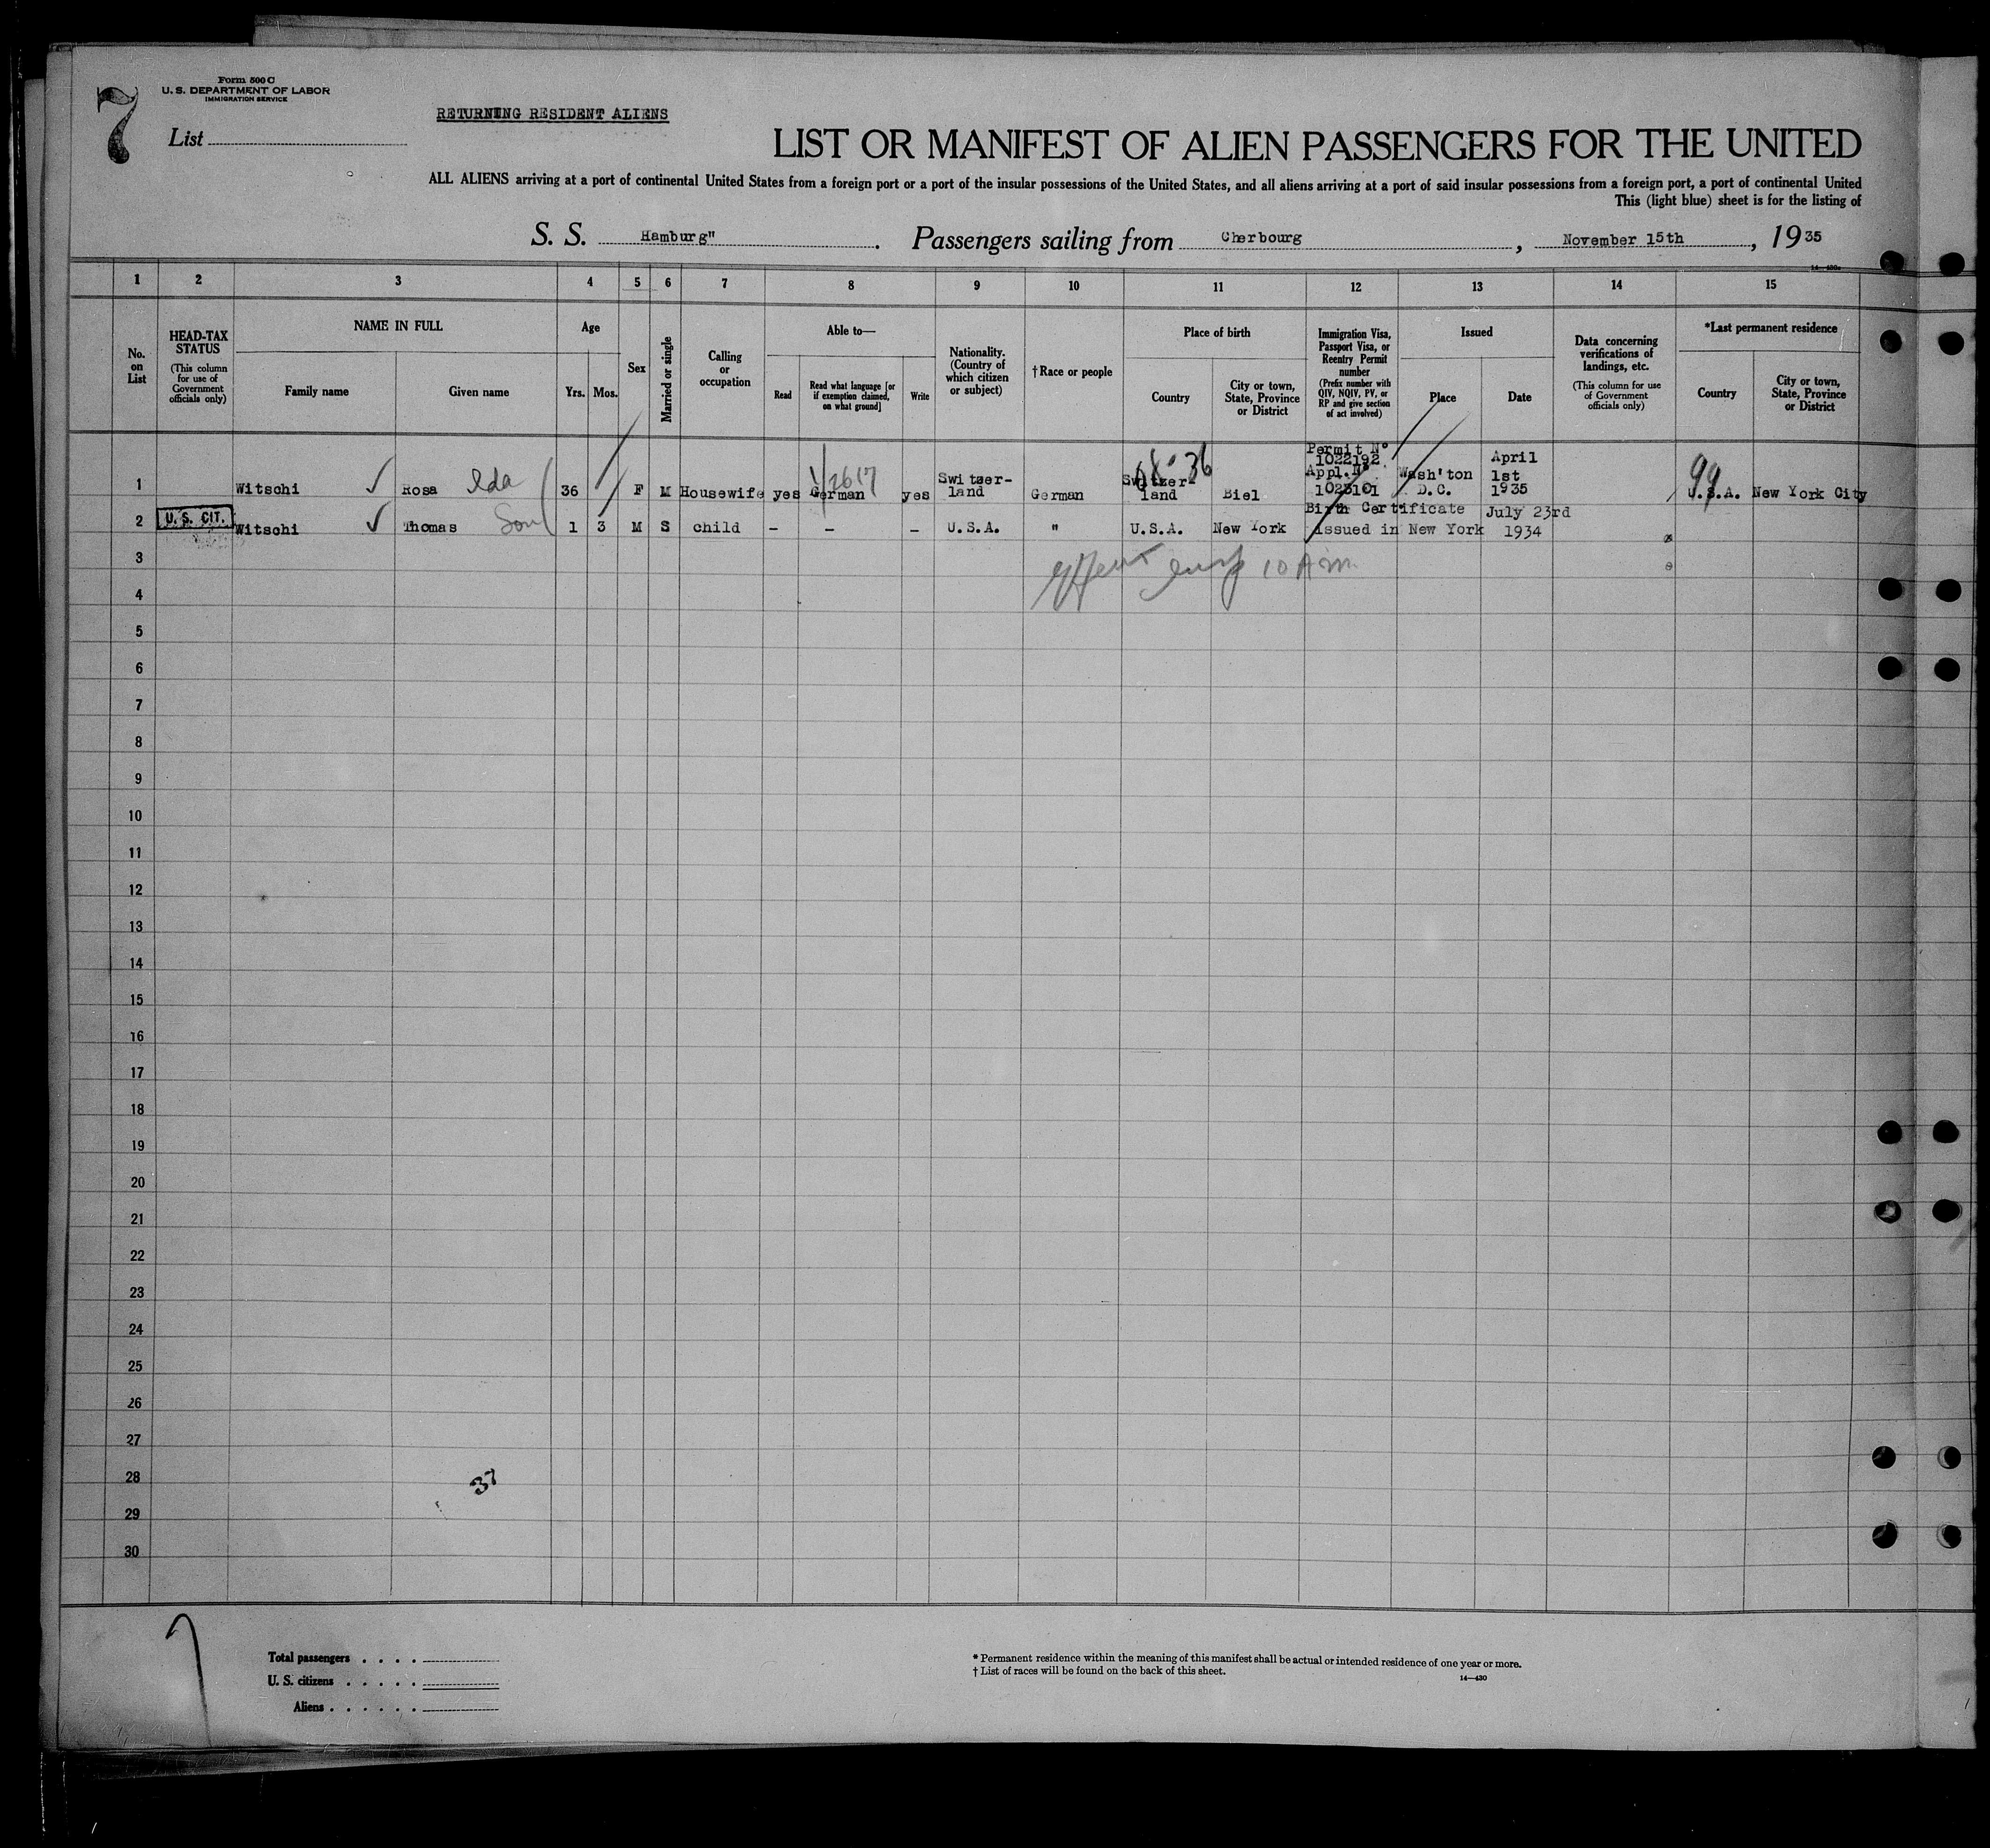 7
Form 500 C
U. S. DEPARTMENT OF LABOR
IMMIGRATION SERVICE
List
RETURNING RESIDENT ALIENS
LIST OR MANIFEST OF ALIEN PASSENGERS FOR THE UNITED
ALL ALIENS arriving at a port of continental United States from a foreign port or a port of the insular possessions of the United States, and all aliens arriving at a port of said insular possessions from a foreign port, a port of continental United
This (light blue) sheet is for the listing of
S. S. Hamburg" . Passengers sailing from Cherbourg , November 15th , 1935
14—430a
1 2 3 4 5 6 7 8 9 10 11 12 13 14 15
No. on List
HEAD-TAX STATUS
(This column for use of Government officials only)
NAME IN FULL
Family name
Given name
Age
Yrs. Mos.
Sex
Married or single
Calling or occupation
Able to—
Read
Read what language [or if exemption claimed, on what ground]
Write
Nationality. (Country of which citizen or subject)
†Race or people
Place of birth
Country
City or town, State, Province or District
Immigration Visa, Passport Visa, or Reentry Permit number
(Prefix number with QIV, NQIV, PV, or RP and give section of act involved)
Issued
Place
Date
Data concerning verifications of landings, etc.
(This column for use of Government officials only)
*Last permanent residence
Country
City or town, State, Province or District
1 Witschi ✓ Rosa Ida 36 F M Housewife yes German yes Switzer-land German Switzer-land Biel Permit N° 1022192 Appl.N° 1023101 Wash'ton D.C. April 1st 1935 99 U.S.A. New York City
2 U. S. CIT. Witschi ✓ Thomas Son 1 3 M S child - - - U.S.A. " U.S.A. New York Birth Certificate issued in New York July 23rd 1934
3 10 Am
4
5
6
7
8
9
10
11
12
13
14
15
16
17
18
19
20
21
22
23
24
25
26
27
28 37
29
30
Total passengers . . . .
U. S. citizens . . . . .
Aliens . . . . . .
* Permanent residence within the meaning of this manifest shall be actual or intended residence of one year or more.
† List of races will be found on the back of this sheet.
14—430